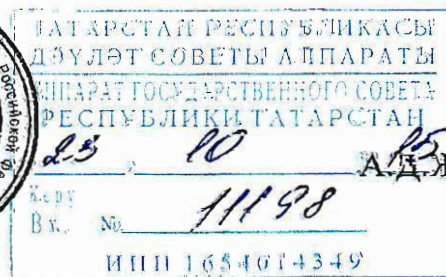 ТАТАРСТАН РЕСПУБЛИКАСЫ
ДӘҮЛӘТ СОВЕТЫ АППАРАТЫ
АППАРАТ ГОСУДАРСТВЕННОГО СОВЕТА
РЕСПУБЛИКИ ТАТАРСТАН
23 10 15
А.Д.
Керү
Вх. № 11198
ИНН 1654014349